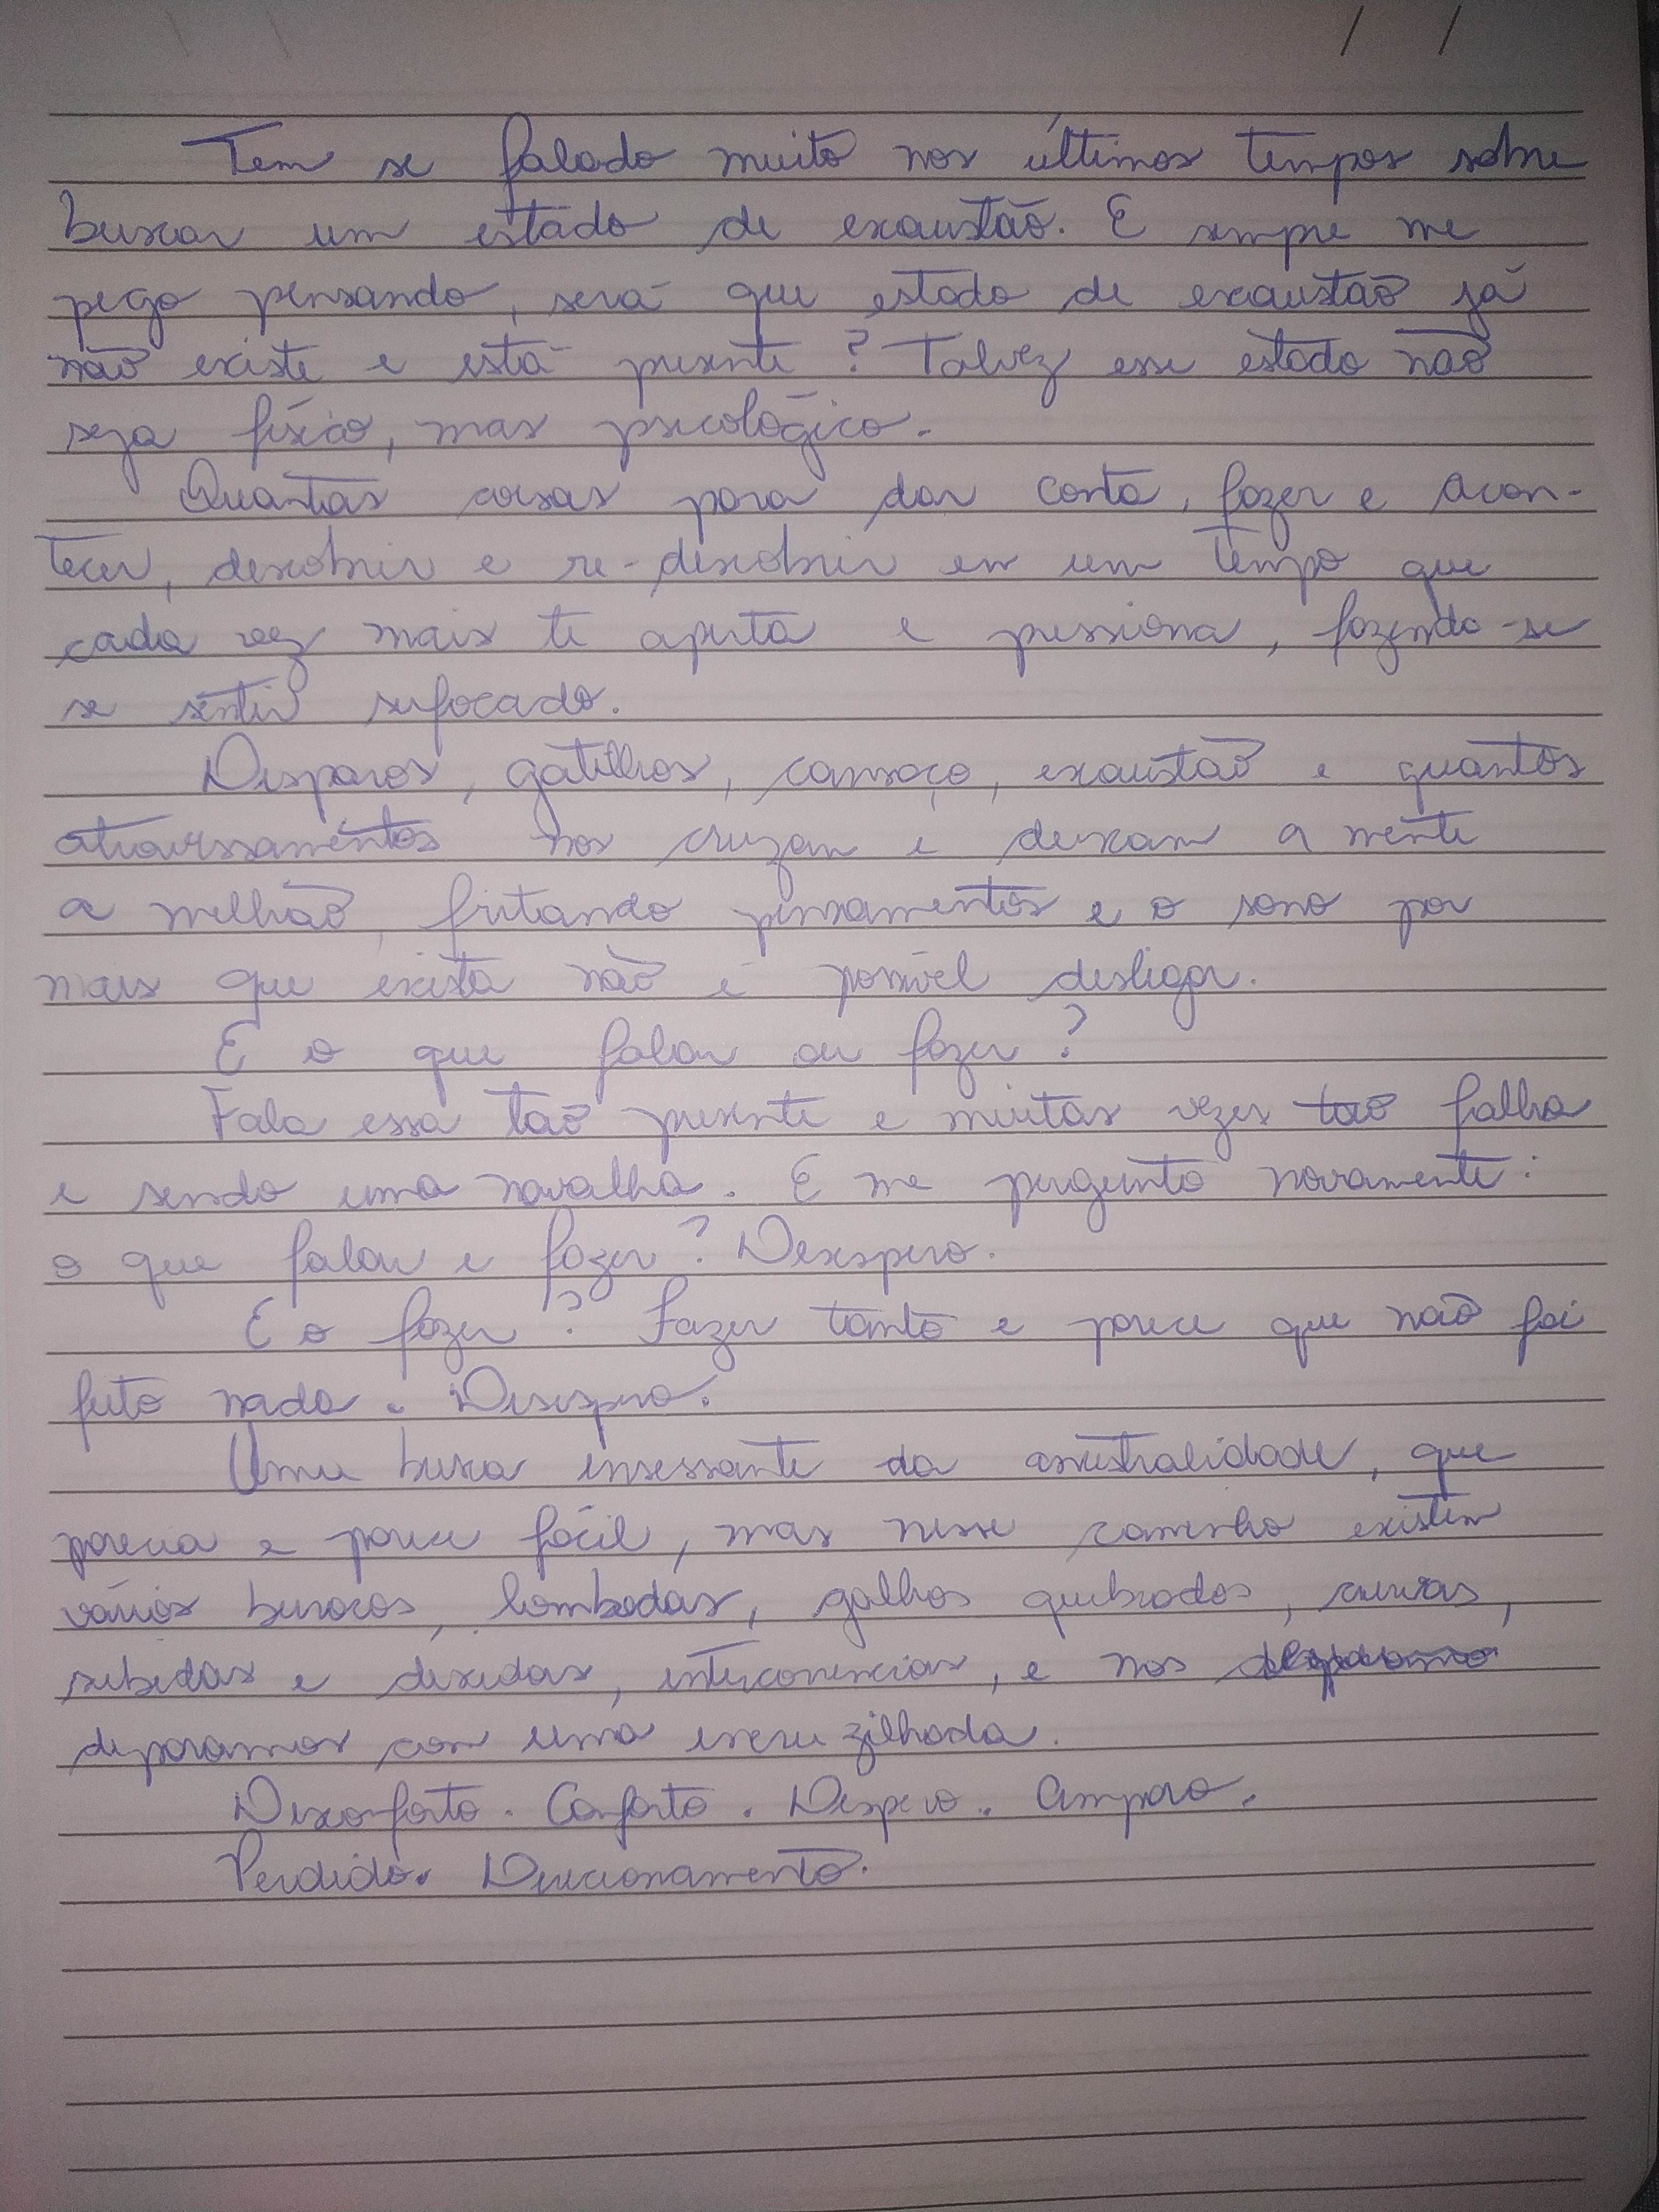 Tem se falado muito nos últimos tempos sobre
buscar um estado de exaustão. E sempre me
pego pensando, será que estado de exaustão já
não existe e está presente? Talvez esse estado não
seja físico, mas psicológico.
Quantas coisas para dar conta, fazer e acon-
tecer, descobrir e re-descobrir em um tempo que
cada vez mais te aperta e pressiona, fazendo-se
se sentir sufocado.
Disparos, gatilhos, cansaço, exaustão e quantos
atravessamentos nos cruzam e deixam a mente
a milhão, fritando pensamentos e o sono por
mais que exista não é possível desligar.
E o que falar ou fazer?
Fala essa tão presente e muitas vezes tão falha
e sendo uma navalha. E me pergunto novamente:
o que falar e fazer? Desespero.
E o fazer? Fazer tanto e parece que não foi
feito nada. Desespero.
Uma busca insessante da ancestralidade, que
parecia e parece fácil, mas nesse caminho existem
vários buracos, lombadas, galhos quebrados, curvas,
subidas e descidas, intercorrencias, e nos
deparamos com uma encruzilhada.
Desconforto. Conforto. Despero. Amparo.
Perdido. Direcionamento.